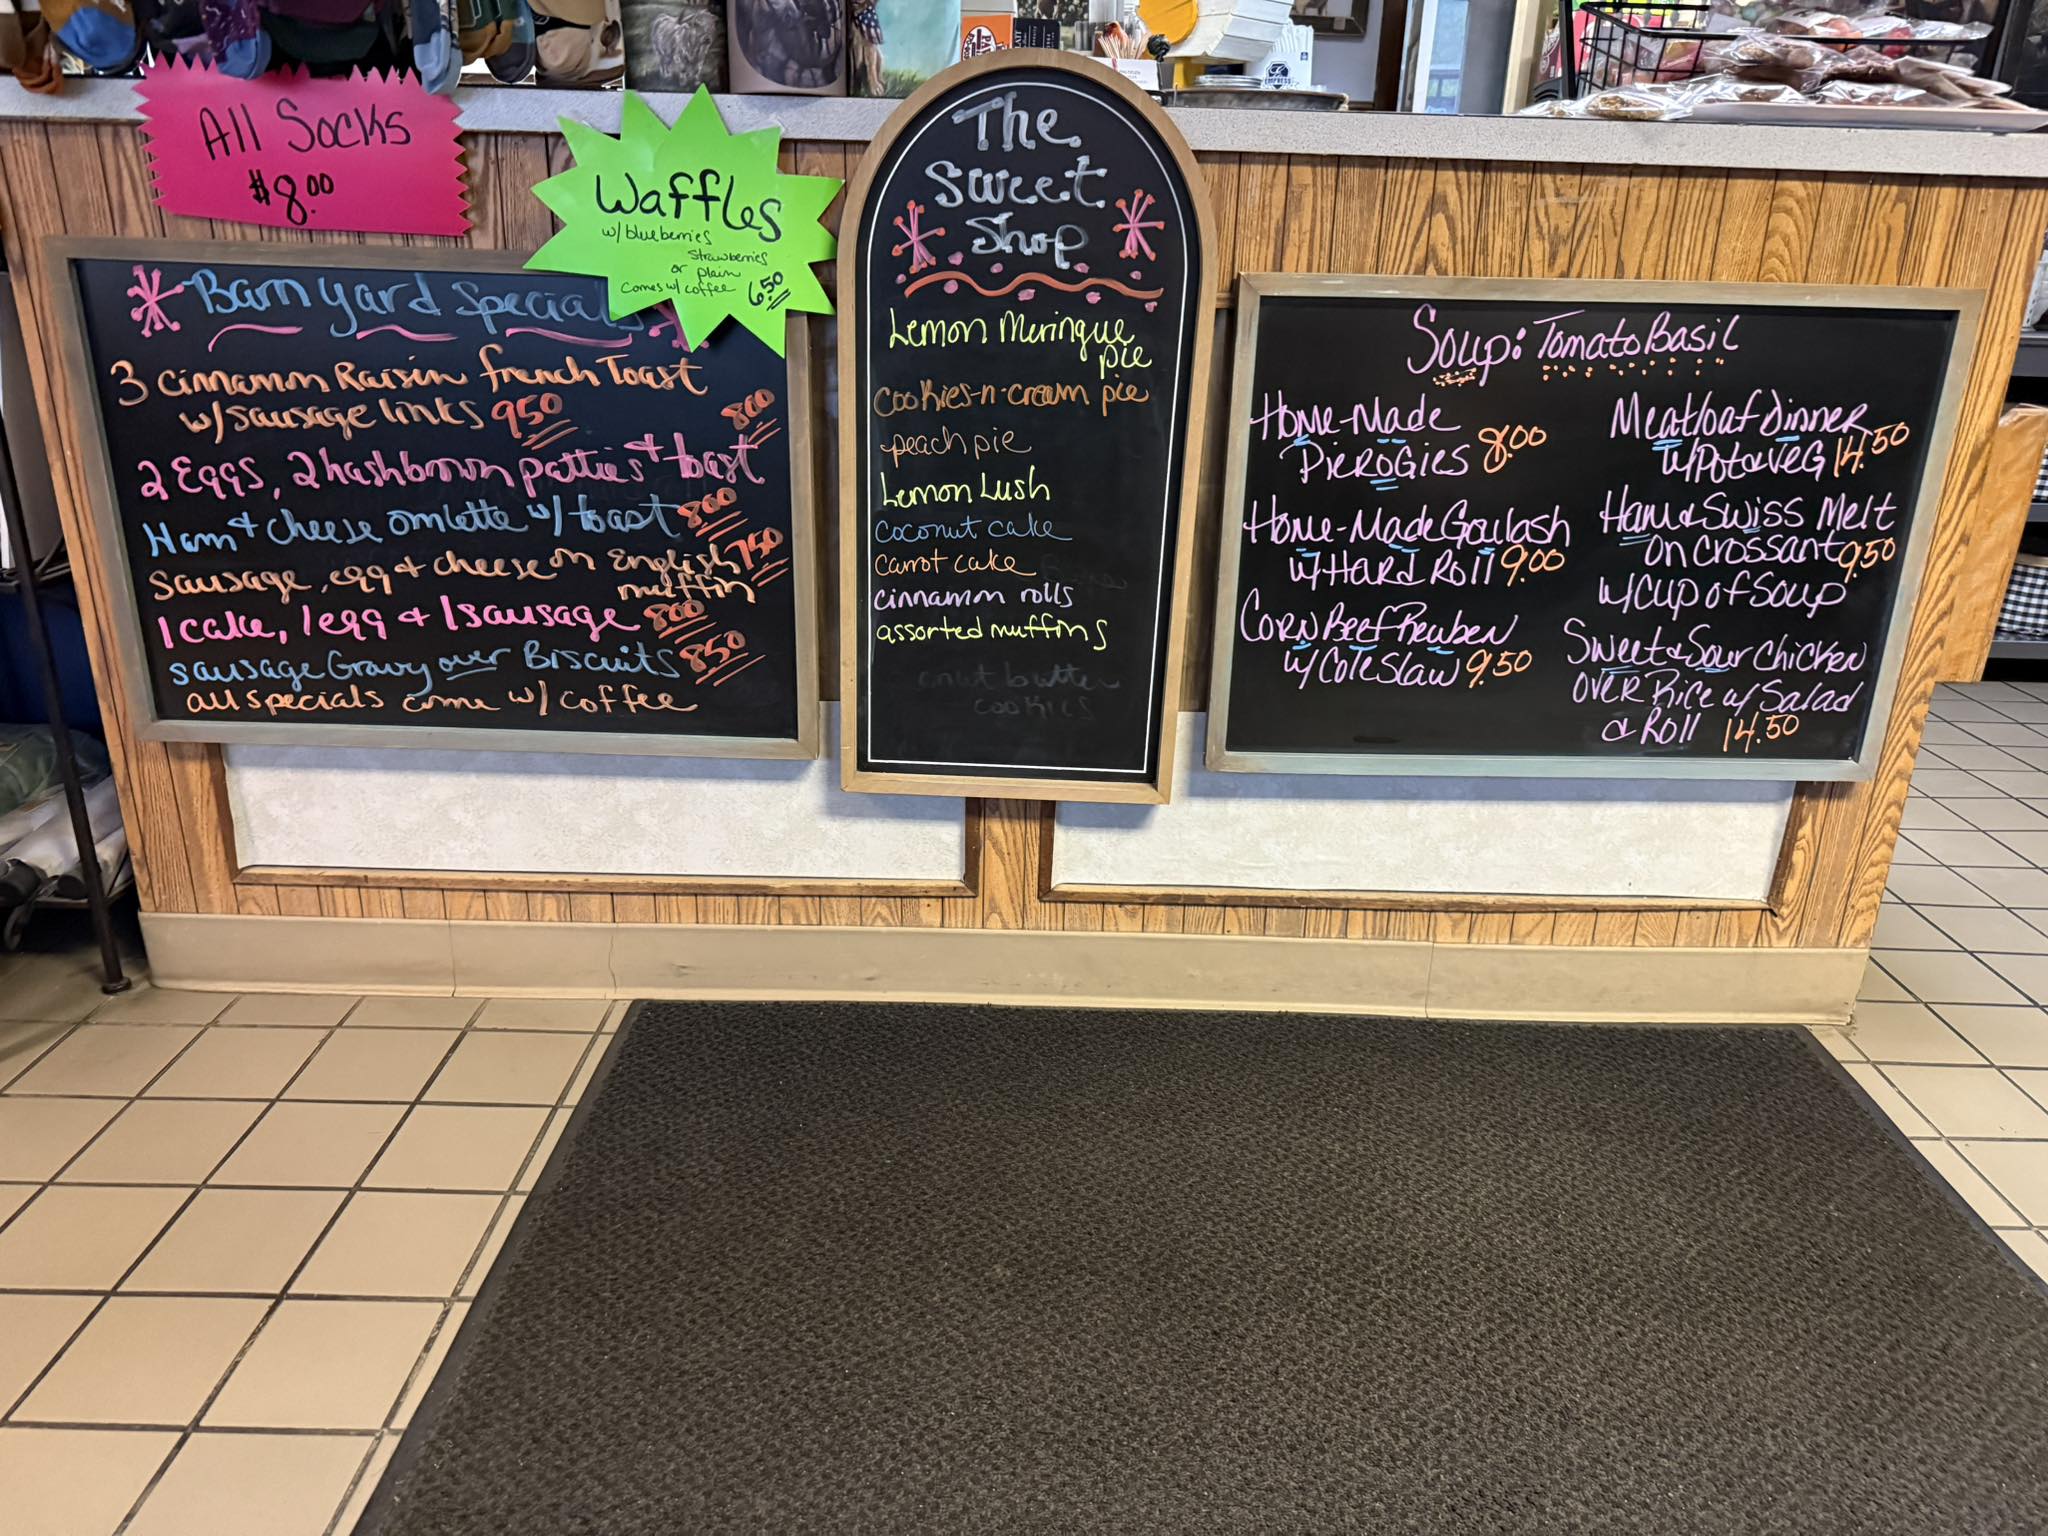 All Socks
$8.00
Waffles
w/blueberries
strawberries
or plain
comes w/ coffee 6.50
Barnyard Specials
3 cinnamon Raisin french Toast
w/sausage links 950
800
2 Eggs, 2 hashbrown patties + toast
Ham + cheese omlette w/ toast 800
sausage, egg + cheese on English 750
muffin
1 cake, 1 egg + 1 sausage 800
sausage Gravy over Biscuits 850
all specials come w/ coffee
The
Sweet
Shop
Lemon Meringue
pie
cookies-n-cream pie
peach pie
Lemon Lush
coconut cake
carrot cake
cinnamon rolls
assorted muffins
butter
cookies
Soup: Tomato Basil
Home-Made
Pierogies 8.00
Home-Made Goulash
w/Hard Roll 9.00
Corn Beef Reuben
w/Coleslaw 9.50
Meatloaf Dinner
w/Pot & Veg 14.50
Ham & Swiss Melt
on Crossant 9.50
w/cup of Soup
Sweet & Sour Chicken
over Rice w/ Salad
& Roll 14.50